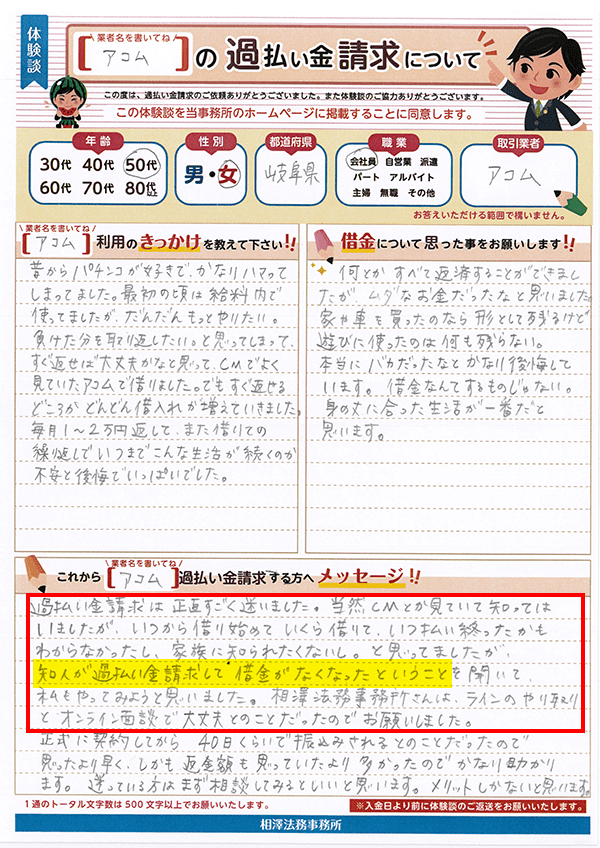 体験談
業者名を書いてね
[アコム]の過払い金請求について
この度は、過払い金請求のご依頼ありがとうございました。また体験談のご協力ありがとうございます。
この体験談を当事務所のホームページに掲載することに同意します。
年齢
30代 40代 50代
60代 70代 80代以上
性別
男・女
都道府県
岐阜県
職業
会社員 自営業 派遣
パート アルバイト
主婦 無職 その他
取引業者
アコム
お答えいただける範囲で構いません。
業者名を書いてね
[アコム]利用のきっかけを教えて下さい!!
昔からパチンコが好きで、かなりハマって
しまってました。最初の頃は給料内で
使ってましたが、だんだんもっとやりたい。
負けた分を取り返したい。と思ってしまって、
すぐ返せば大丈夫かなと思って、CMでよく
見ていたアコムで借りました。でもすぐ返せる
どころかどんどん借入れが増えていきました。
毎月1〜2万円返して、また借りての
繰り返しでいつまでこんな生活が続くのか
不安と後悔でいっぱいでした。
借金について思った事をお願いします!!
何とかすべて返済することができまし
たが、ムダなお金だったなと思いました。
家や車を買ったのなら形として残るけど
遊びに使ったのは何も残らない。
本当にバカだったなとかなり後悔して
います。借金なんてするものじゃない。
身の丈に合った生活が一番だと
思います。
業者名を書いてね
これから[アコム]過払い金請求する方へメッセージ!!
過払い金請求は正直すごく迷いました。当然CMとか見ていて知っては
いましたが、いつから借り始めていくら借りて、いつ払い終ったかも
わからなかったし、家族に知られたくないし。と思ってましたが、
知人が過払い金請求して借金がなくなったということを聞いて、
私もやってみようと思いました。相澤法務事務所さんは、ラインのやり取り
とオンライン面談で大丈夫とのことだったのでお願いしました。
正式に契約してから40日くらいで振込みされるとのことだったので
思ったより早く、しかも返金額も思っていたより多かったのでかなり助かり
ます。迷っている方はまず相談してみるといいと思います。メリットしかないと思います。
1通のトータル文字数は500文字以上でお願いいたします。
※入金日より前に体験談のご返送をお願いいたします。
相澤法務事務所